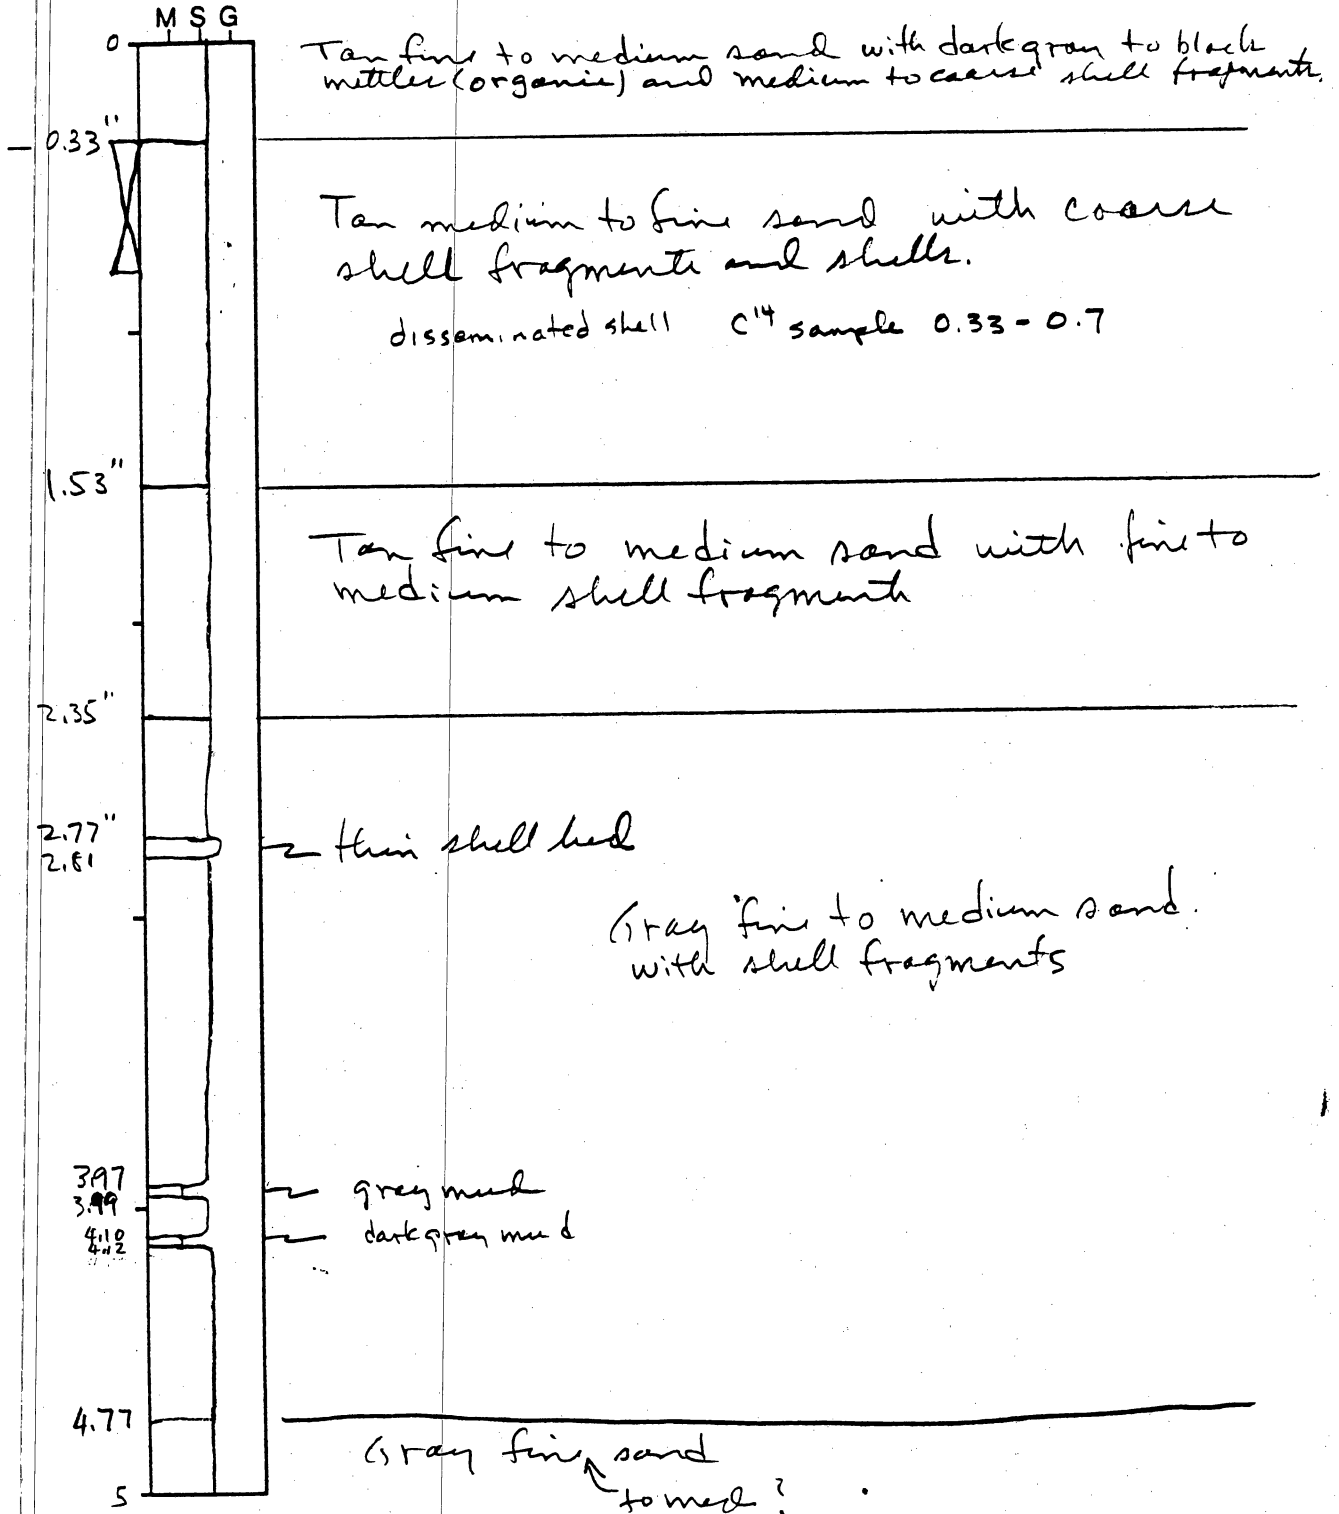 M S G
0
Tan fine to medium sand with dark gray to black
mottles (organic) and medium to coarse shell fragments.
0.33"
Tan medium to fine sand with coarse
shell fragments and shells.
disseminated shell C14 sample 0.33 - 0.7
1.53"
Tan fine to medium sand with fine to
medium shell fragments
2.35"
2.77"
thin shell bed
2.81
Gray fine to medium sand.
with shell fragments
3.97
gray mud
3.99
4.10
dark gray mud
4.12
4.77
Gray fine sand
to med ?
5